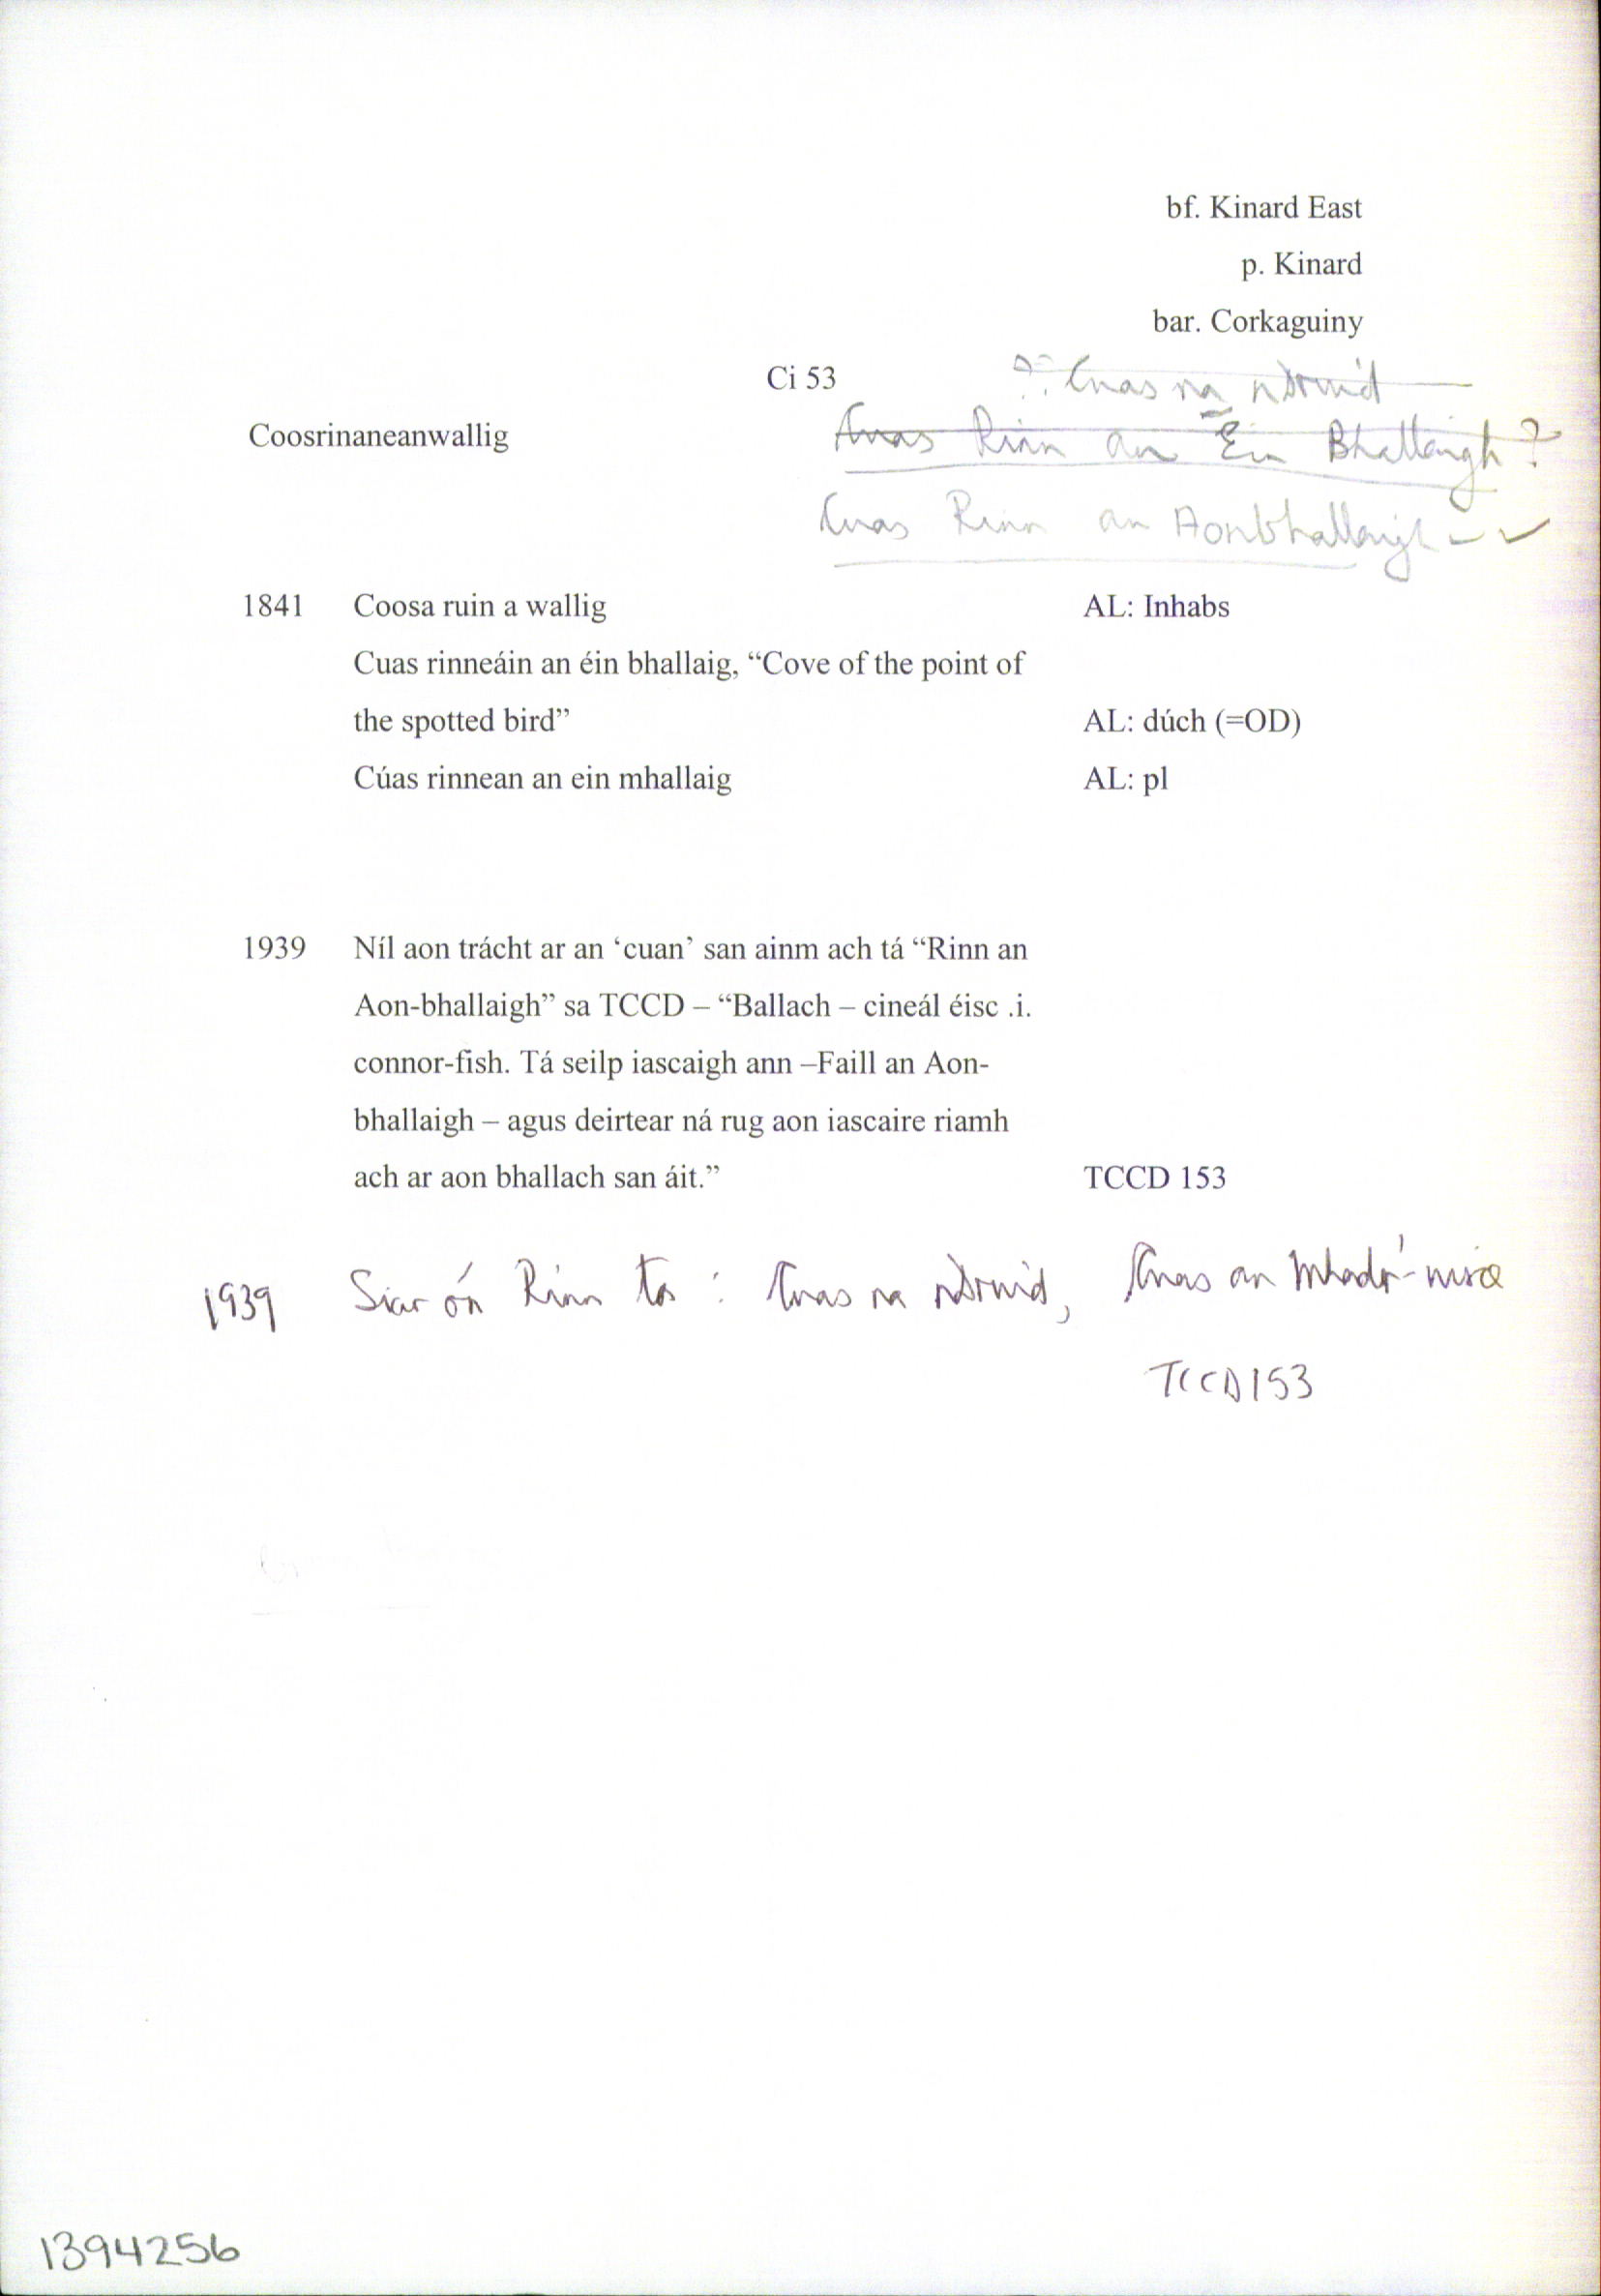 bf. Kinard East
p. Kinard
bar. Corkaguiny
Ci 53
?: Cuas na nDruid
Coosrinaneanwallig
Cuas Rinn an Éin Bhallaigh?
Cuas Rinn an Aonbhallaigh
1841 Coosa ruin a wallig AL: Inhabs
Cuas rinneáin an éin bhallaig, “Cove of the point of
the spotted bird” AL: dúch (=OD)
Cúas rinnean an ein mhallaig AL: pl
1939 Níl aon trácht ar an ‘cuan’ san ainm ach tá “Rinn an
Aon-bhallaigh” sa TCCD – “Ballach – cineál éisc .i.
connor-fish. Tá seilp iascaigh ann –Faill an Aon-
bhallaigh – agus deirtear ná rug aon iascaire riamh
ach ar aon bhallach san áit.” TCCD 153
1939 Siar ón Rinn tá : Cuas na nDruid, Cuas an Mhadr
TCCD 153
1394256